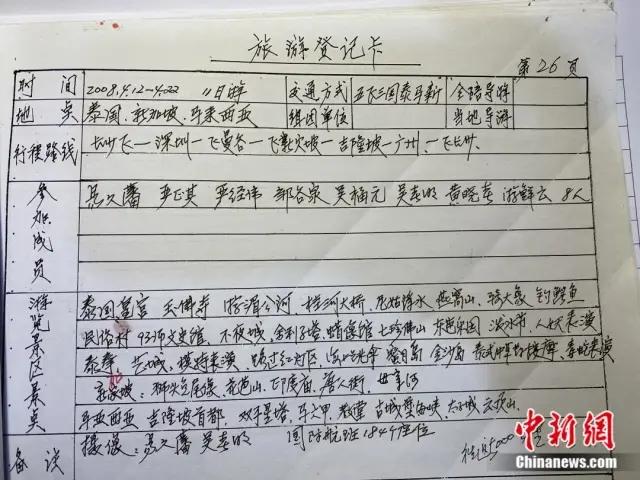 旅游登记卡
第26页
时间 2008.4.12-4.22 11日游 交通方式 五飞三国泰马新 全陪导游
地点 泰国、新加坡、马来西亚 组团单位 当地导游
行程路线 长沙飞—深圳—飞曼谷—飞新加坡—吉隆坡—广州—飞长沙
参加成员 聂久藩 严正其 严经伟 郭谷泉 吴福元 吴春明 黄晓春 游鲜云 8人
游览景区景点 泰国皇宫 玉佛寺 游湄公河 桂河大桥 燕窝山、骑大象 钓鳄鱼
民俗村 93师文史馆、不夜城 金利子塔 蜡像馆 七珍佛山 东芭乐园 淡水市、人妖表演
泰拳 艺城、模特表演 路过红灯区 月岛 金沙岛 泰式 按摩、毒蛇表演
新加坡: 狮头 花芭山 印度庙 唐人街
马亚西亚 吉隆坡首都、双子星塔、马六甲 教堂 古城 海峡 太子城 云顶山
备谈 摄像:聂久藩 吴春明 国际航班 184个座位
中新网
Chinanews.com